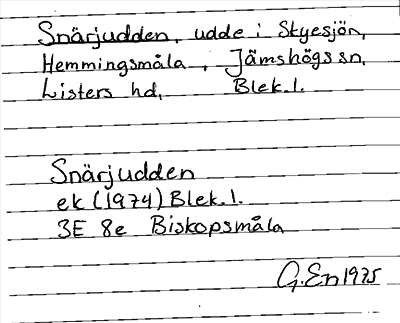 Snärjudden, udde i Styesjön,
Hemmingsmåla, Jämshögs sn,
Listers hd, Blek. l.
Snärjudden
ek (1974) Blek. l.
3E 8e Biskopsmåla
G. En 1975